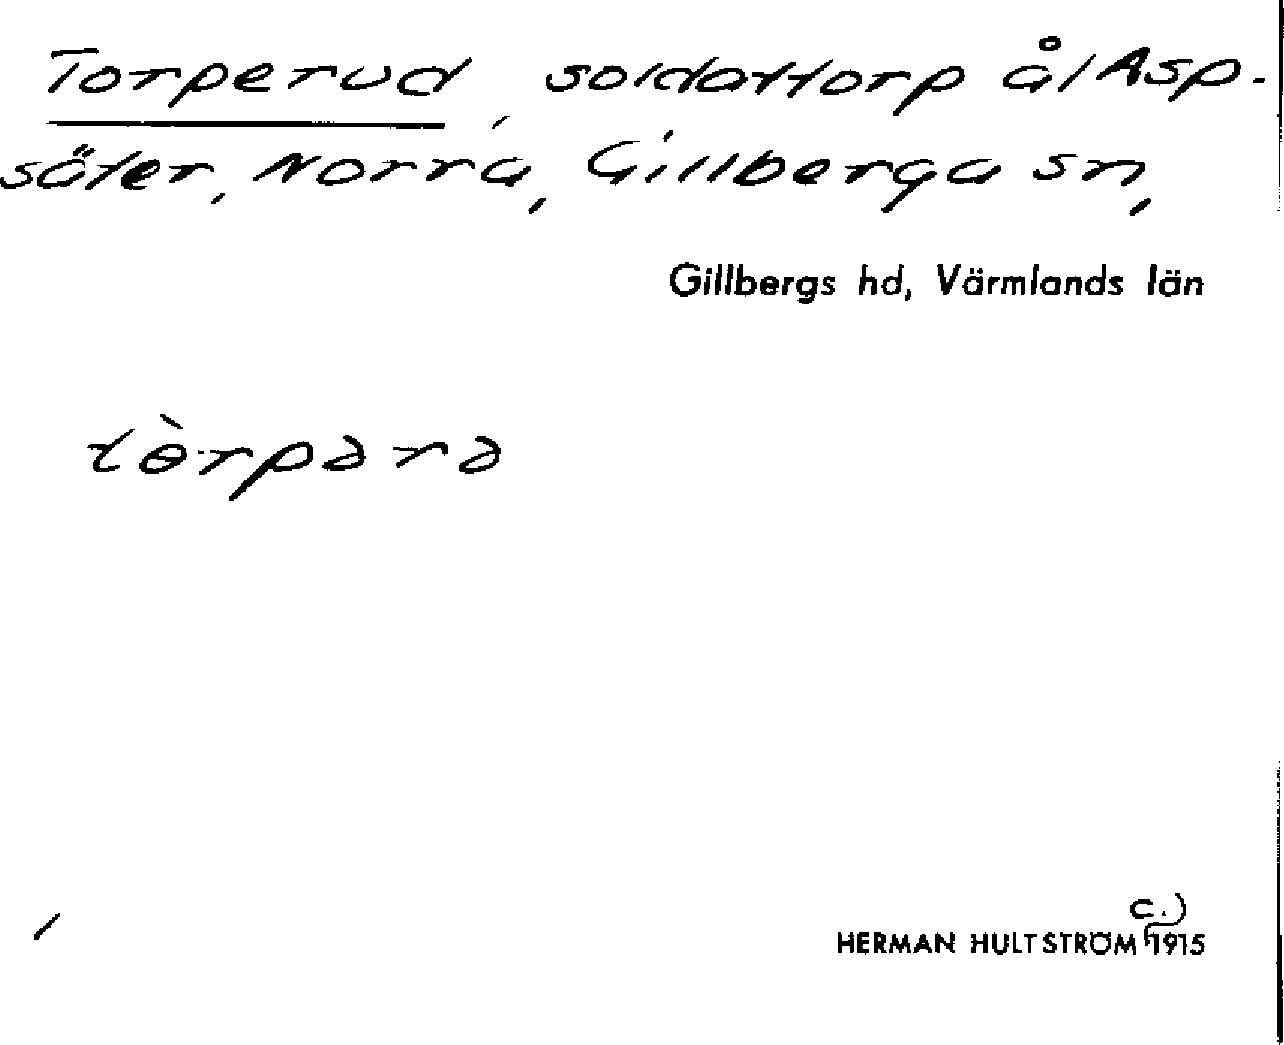 Torperud, soldattorp å/Asp-
säter, Norra, Gillberga sn,
Gillbergs hd, Värmlands län
tɵ̀rpərə
/
HERMAN HULTSTRÖM c.) 1915